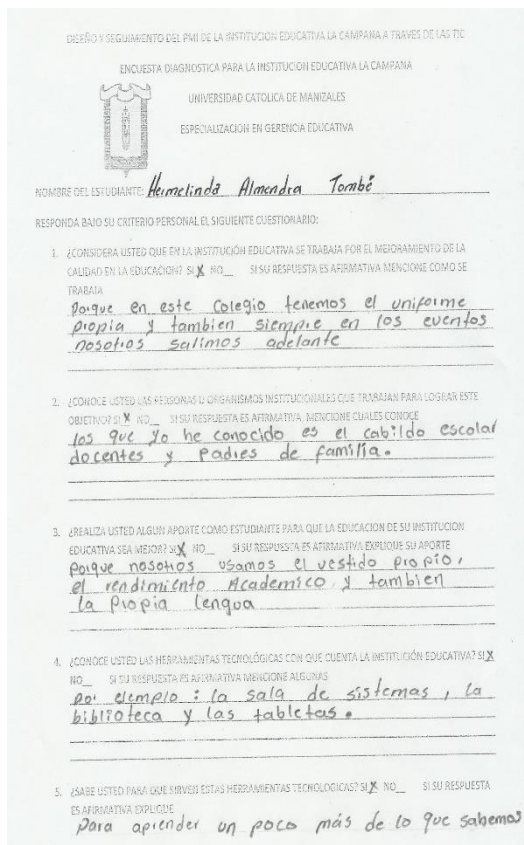 DISEÑO Y SEGUIMIENTO DEL PMI DE LA INSTITUCION EDUCATIVA LA CAMPANA A TRAVES DE LAS TIC
ENCUESTA DIAGNOSTICA PARA LA INSTITUCION EDUCATIVA LA CAMPANA
UNIVERSIDAD CATOLICA DE MANIZALES
ESPECIALIZACION EN GERENCIA EDUCATIVA
NOMBRE DEL ESTUDIANTE: Hermelinda Almendra Tombé
RESPONDA BAJO SU CRITERIO PERSONAL EL SIGUIENTE CUESTIONARIO:
1. ¿CONSIDERA USTED QUE EN LA INSTITUCIÓN EDUCATIVA SE TRABAJA POR EL MEJORAMIENTO DE LA
CALIDAD EN LA EDUCACION? SI X NO__ SI SU RESPUESTA ES AFIRMATIVA MENCIONE COMO SE
TRABAJA
Porque en este Colegio tenemos el uniforme
propia y tambien siempre en los eventos
nosotros salimos adelante
2. ¿CONOCE USTED LAS PERSONAS U ORGANISMOS INSTITUCIONALES QUE TRABAJAN PARA LOGRAR ESTE
OBJETIVO? SI X NO__ SI SU RESPUESTA ES AFIRMATIVA, MENCIONE CUALES CONOCE
los que yo he conocido es el cabildo escolar
docentes y Padres de familia.
3. ¿REALIZA USTED ALGUN APORTE COMO ESTUDIANTE PARA QUE LA EDUCACION DE SU INSTITUCION
EDUCATIVA SEA MEJOR? SI X NO__ SI SU RESPUESTA ES AFIRMATIVA EXPLIQUE SU APORTE
Porque nosotros usamos el vestido propio,
el rendimiento Academico y tambien
la Propia lengua
4. ¿CONOCE USTED LAS HERRAMIENTAS TECNOLÓGICAS CON QUE CUENTA LA INSTITUCIÓN EDUCATIVA? SI X
NO__ SI SU RESPUESTA ES AFIRMATIVA MENCIONE ALGUNAS
Por ejemplo: la sala de sistemas, la
biblioteca y las tabletas.
5. ¿SABE USTED PARA QUE SIRVEN ESTAS HERRAMIENTAS TECNOLOGICAS? SI X NO__ SI SU RESPUESTA
ES AFIRMATIVA EXPLIQUE
Para aprender un poco más de lo que sabemos